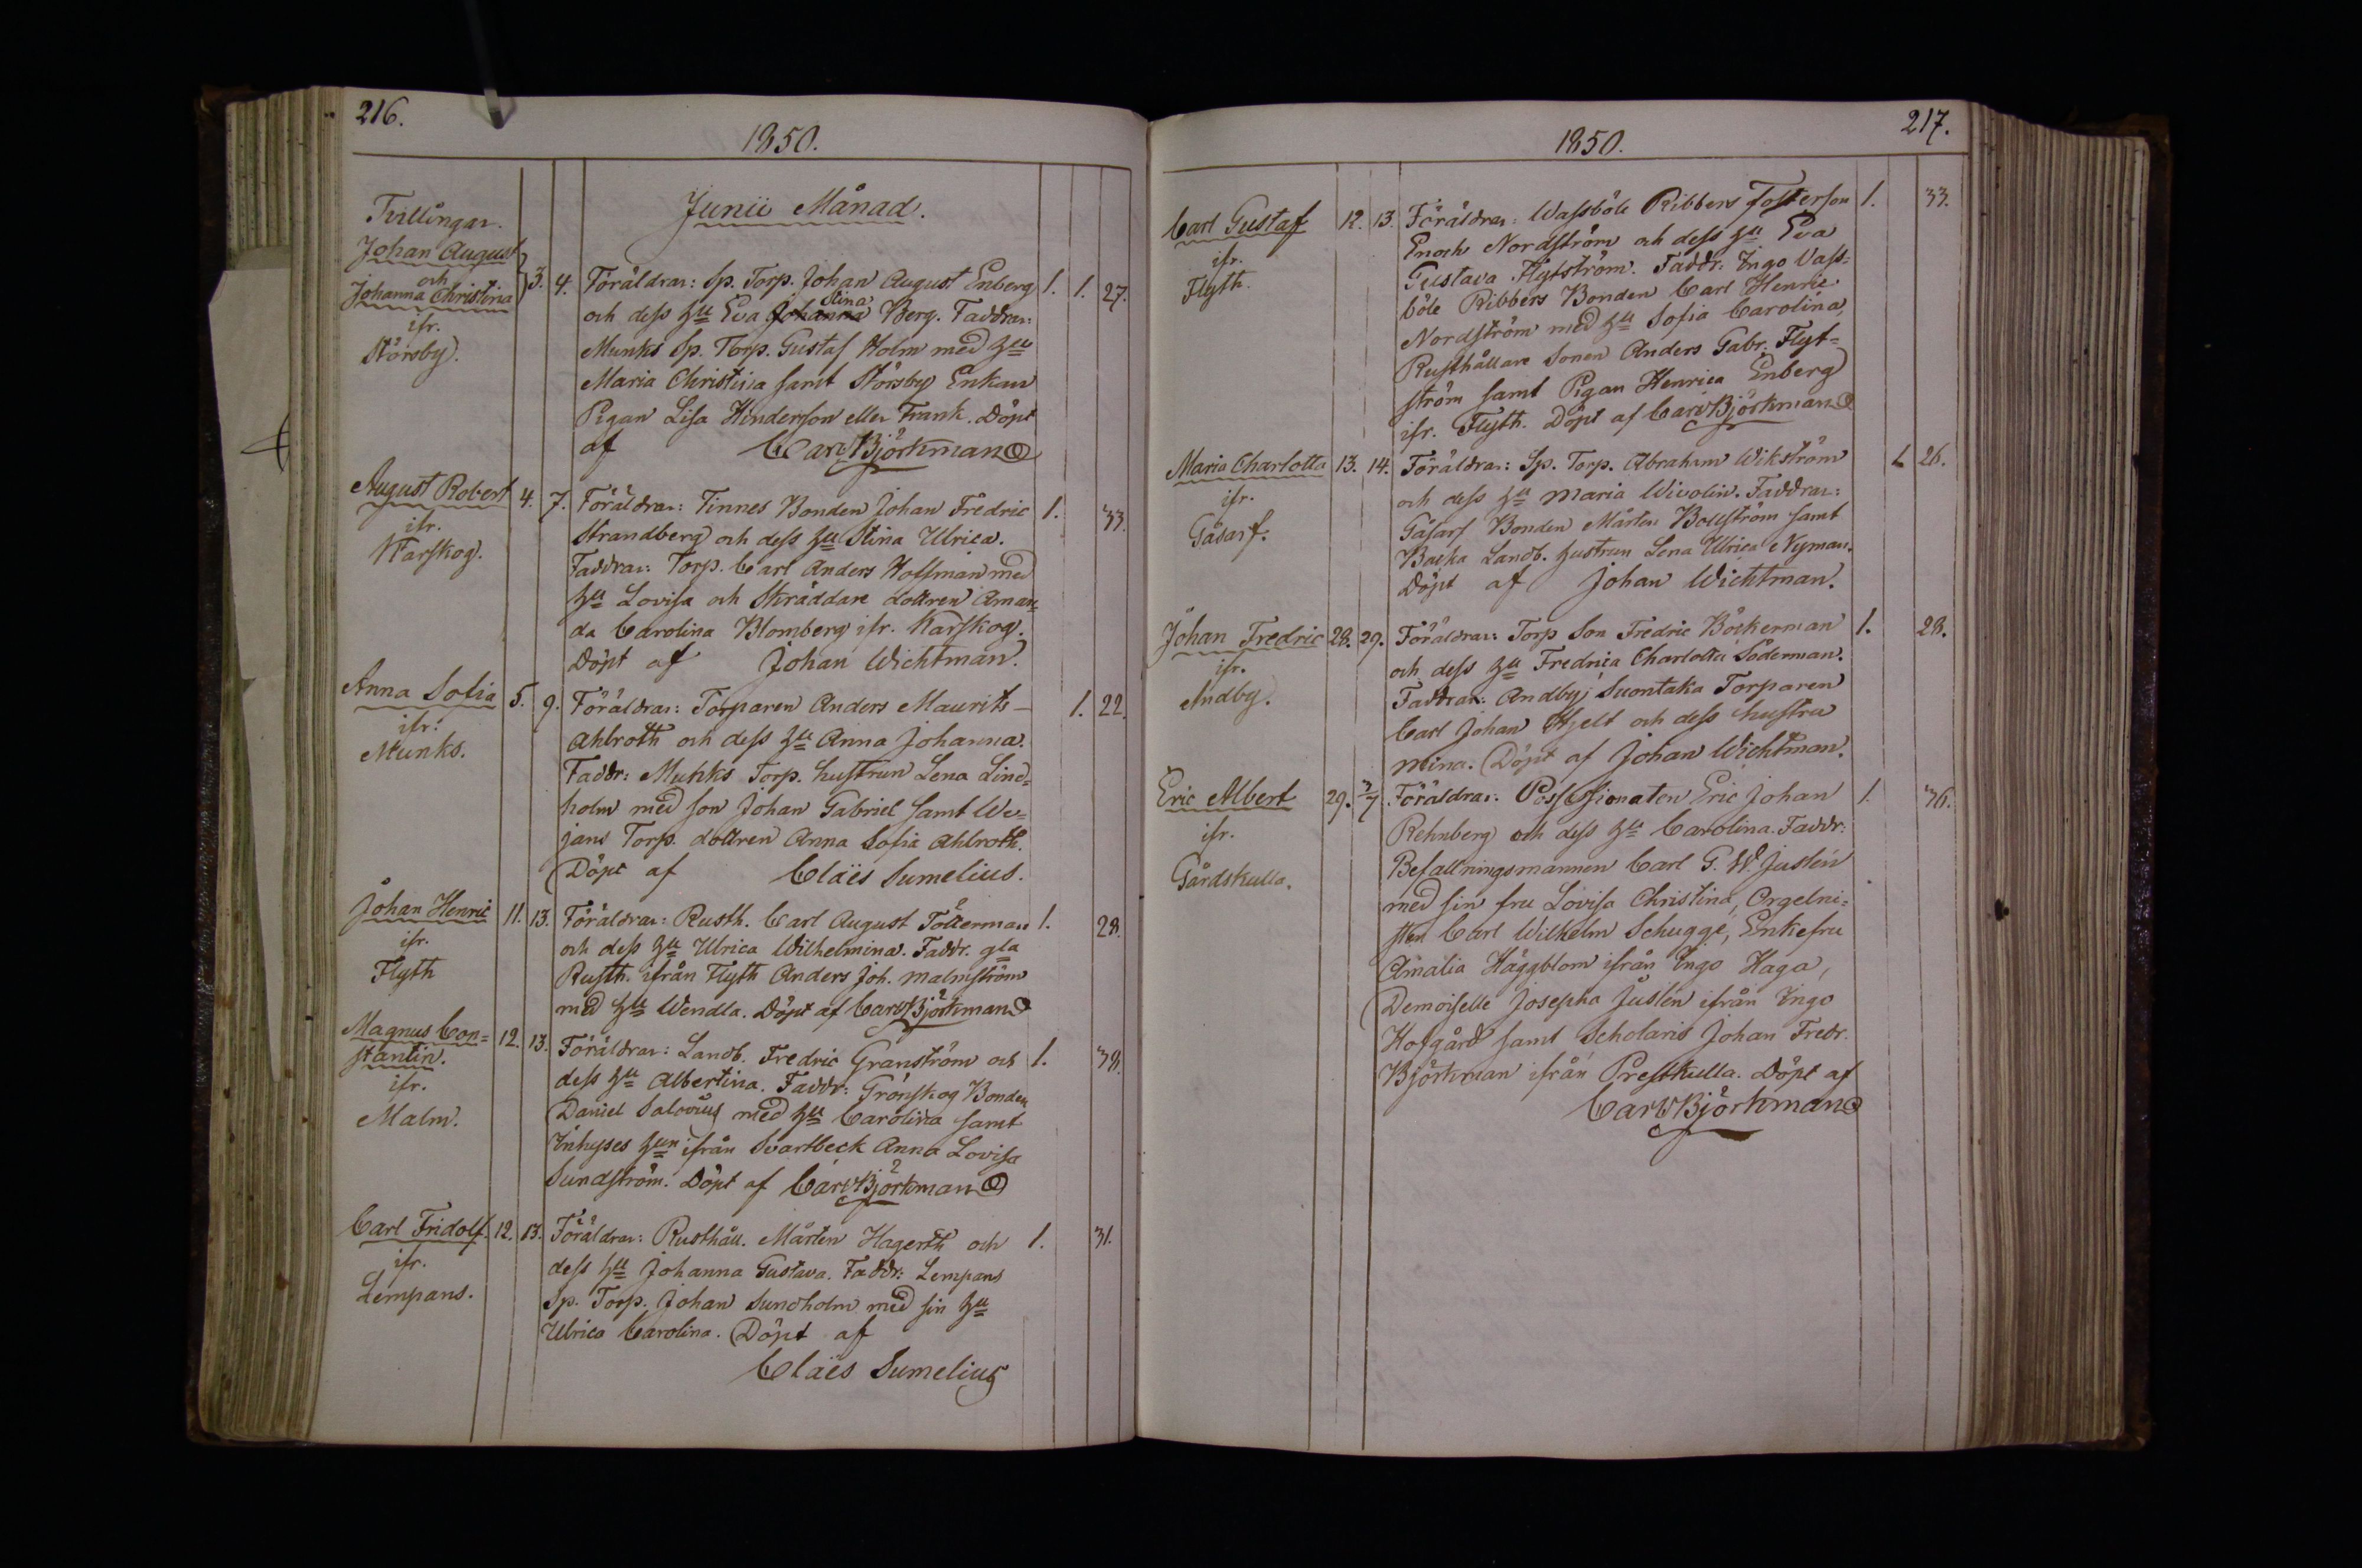 216.
1850.
Junii Månad.
Tvillingar.
Johan August
och
Johanna Christina
ifr.
Störsby.
3. 4. Föräldrar: Sp. Torp. Johan August Enberg 1. 1. 27.
och dess hu Eva Johanna Stina Berg. Faddrar:
Munks Sp. Torp. Gustaf Holm med hu
Maria Christina samt Störsby Enkan
Pigan Lisa Hinderson eller Frank. Döpt
af Carl Björkman
August Robert 4. 7. Föräldrar: Finnes Bonden Johan Fredric 1. 33.
ifr.
Karskog.
Strandberg och dess hu Stina Ulrica.
Faddrar: Torp. Carl Anders Hoffman med
hu Lovisa och Skräddare dottren Aman=
da Carolina Blomberg ifr. Karskog.
Döpt af Johan Wichtman.
Anna Sofia 5. 9. Föräldrar: Torparen Anders Maurits 1. 22.
ifr.
Munks.
Ahlroth och dess hu Anna Johanna.
Faddr: Munks Torp. hustrun Lena Lind=
holm med son Johan Gabriel samt We=
jans Torp. dottren Anna Sofia Ahlroth.
Döpt af Claës Sumelius.
Johan Henric 11. 13. Föräldrar: Rusth. Carl August Tötterman 1. 28.
ifr.
Flyth
och dess hu Ulrica Wilhelmina. Faddr. gla
Rusth. ifrån Flyth Anders Joh. Malmström
med hu Wendla. Döpt af Carl Björkman
Magnus Con= 12. 13. Föräldrar: Landb. Fredric Granström och 1. 38.
stantin.
ifr.
Malm.
dess hu Albertina. Faddr: Grönskog Bonden
Daniel Salovius med hu Carolina samt
Inhyses hun ifrån Svartbeck Anna Lovisa
Sundström. Döpt af Carl Björkman
Carl Fridolf. 12. 13. Föräldrar: Rusthåll. Mårten Hagerth och 1. 31.
ifr.
Lempans.
dess hu Johanna Gustava. Faddr: Lempans
Sp. Torp. Johan Sundholm med sin hu
Ulrica Carolina. Döpt af
Claës Sumelius
217.
1850.
Carl Gustaf 12. 13. Föräldrar: Wassböle Ribbers Fosterson 1. 33.
ifr.
Flyth.
Enoch Nordström och dess hu Eva
Gustava Flytström. Faddr: Ingo Vass=
böle Ribbers Bonden Carl Henric
Nordström med hu Sofia Carolina,
Rusthållare Sonen Anders Gabr. Flyt=
ström samt Pigan Henrica Enberg
ifr. Flyth. Döpt af Carl Björkman
Maria Charlotta 13. 14. Föräldrar: Sp. Torp. Abraham Wikström 1. 26.
ifr.
Gåsarf.
och dess hu Maria Wivolin. Faddrar:
Gåsarf Bonden Mårten Bollström samt
Backa Landb. hustrun Lena Ulrica Nyman.
Döpt af Johan Wichtman.
Johan Fredric 28. 29. Föräldrar: Torp Son Fredric Böckerman 1. 28.
ifr.
Andby.
och dess hu Fredrica Charlotta Söderman.
Faddrar: Andby, Suontaka Torparen
Carl Johan Hjelt och dess hustru
Mina. Döpt af Johan Wichtman.
Eric Albert 29. 7/7. Föräldrar: Possessionaten Eric Johan 1. 36.
ifr.
Gårdskulla.
Rehnberg och dess hu Carolina. Faddr:
Befallningsmannen Carl G. W. Juslén
med sin fru Lovisa Christina, Orgelni=
sten Carl Wilhelm Schugge, Enkefru
Amalia Häggblom ifrån Ingo Haga,
Demoiselle Josepha Juslén ifrån Ingo
Hofgård samt Scholaris Johan Fredr.
Björkman ifrån Prestkulla. Döpt af
Carl Björkman